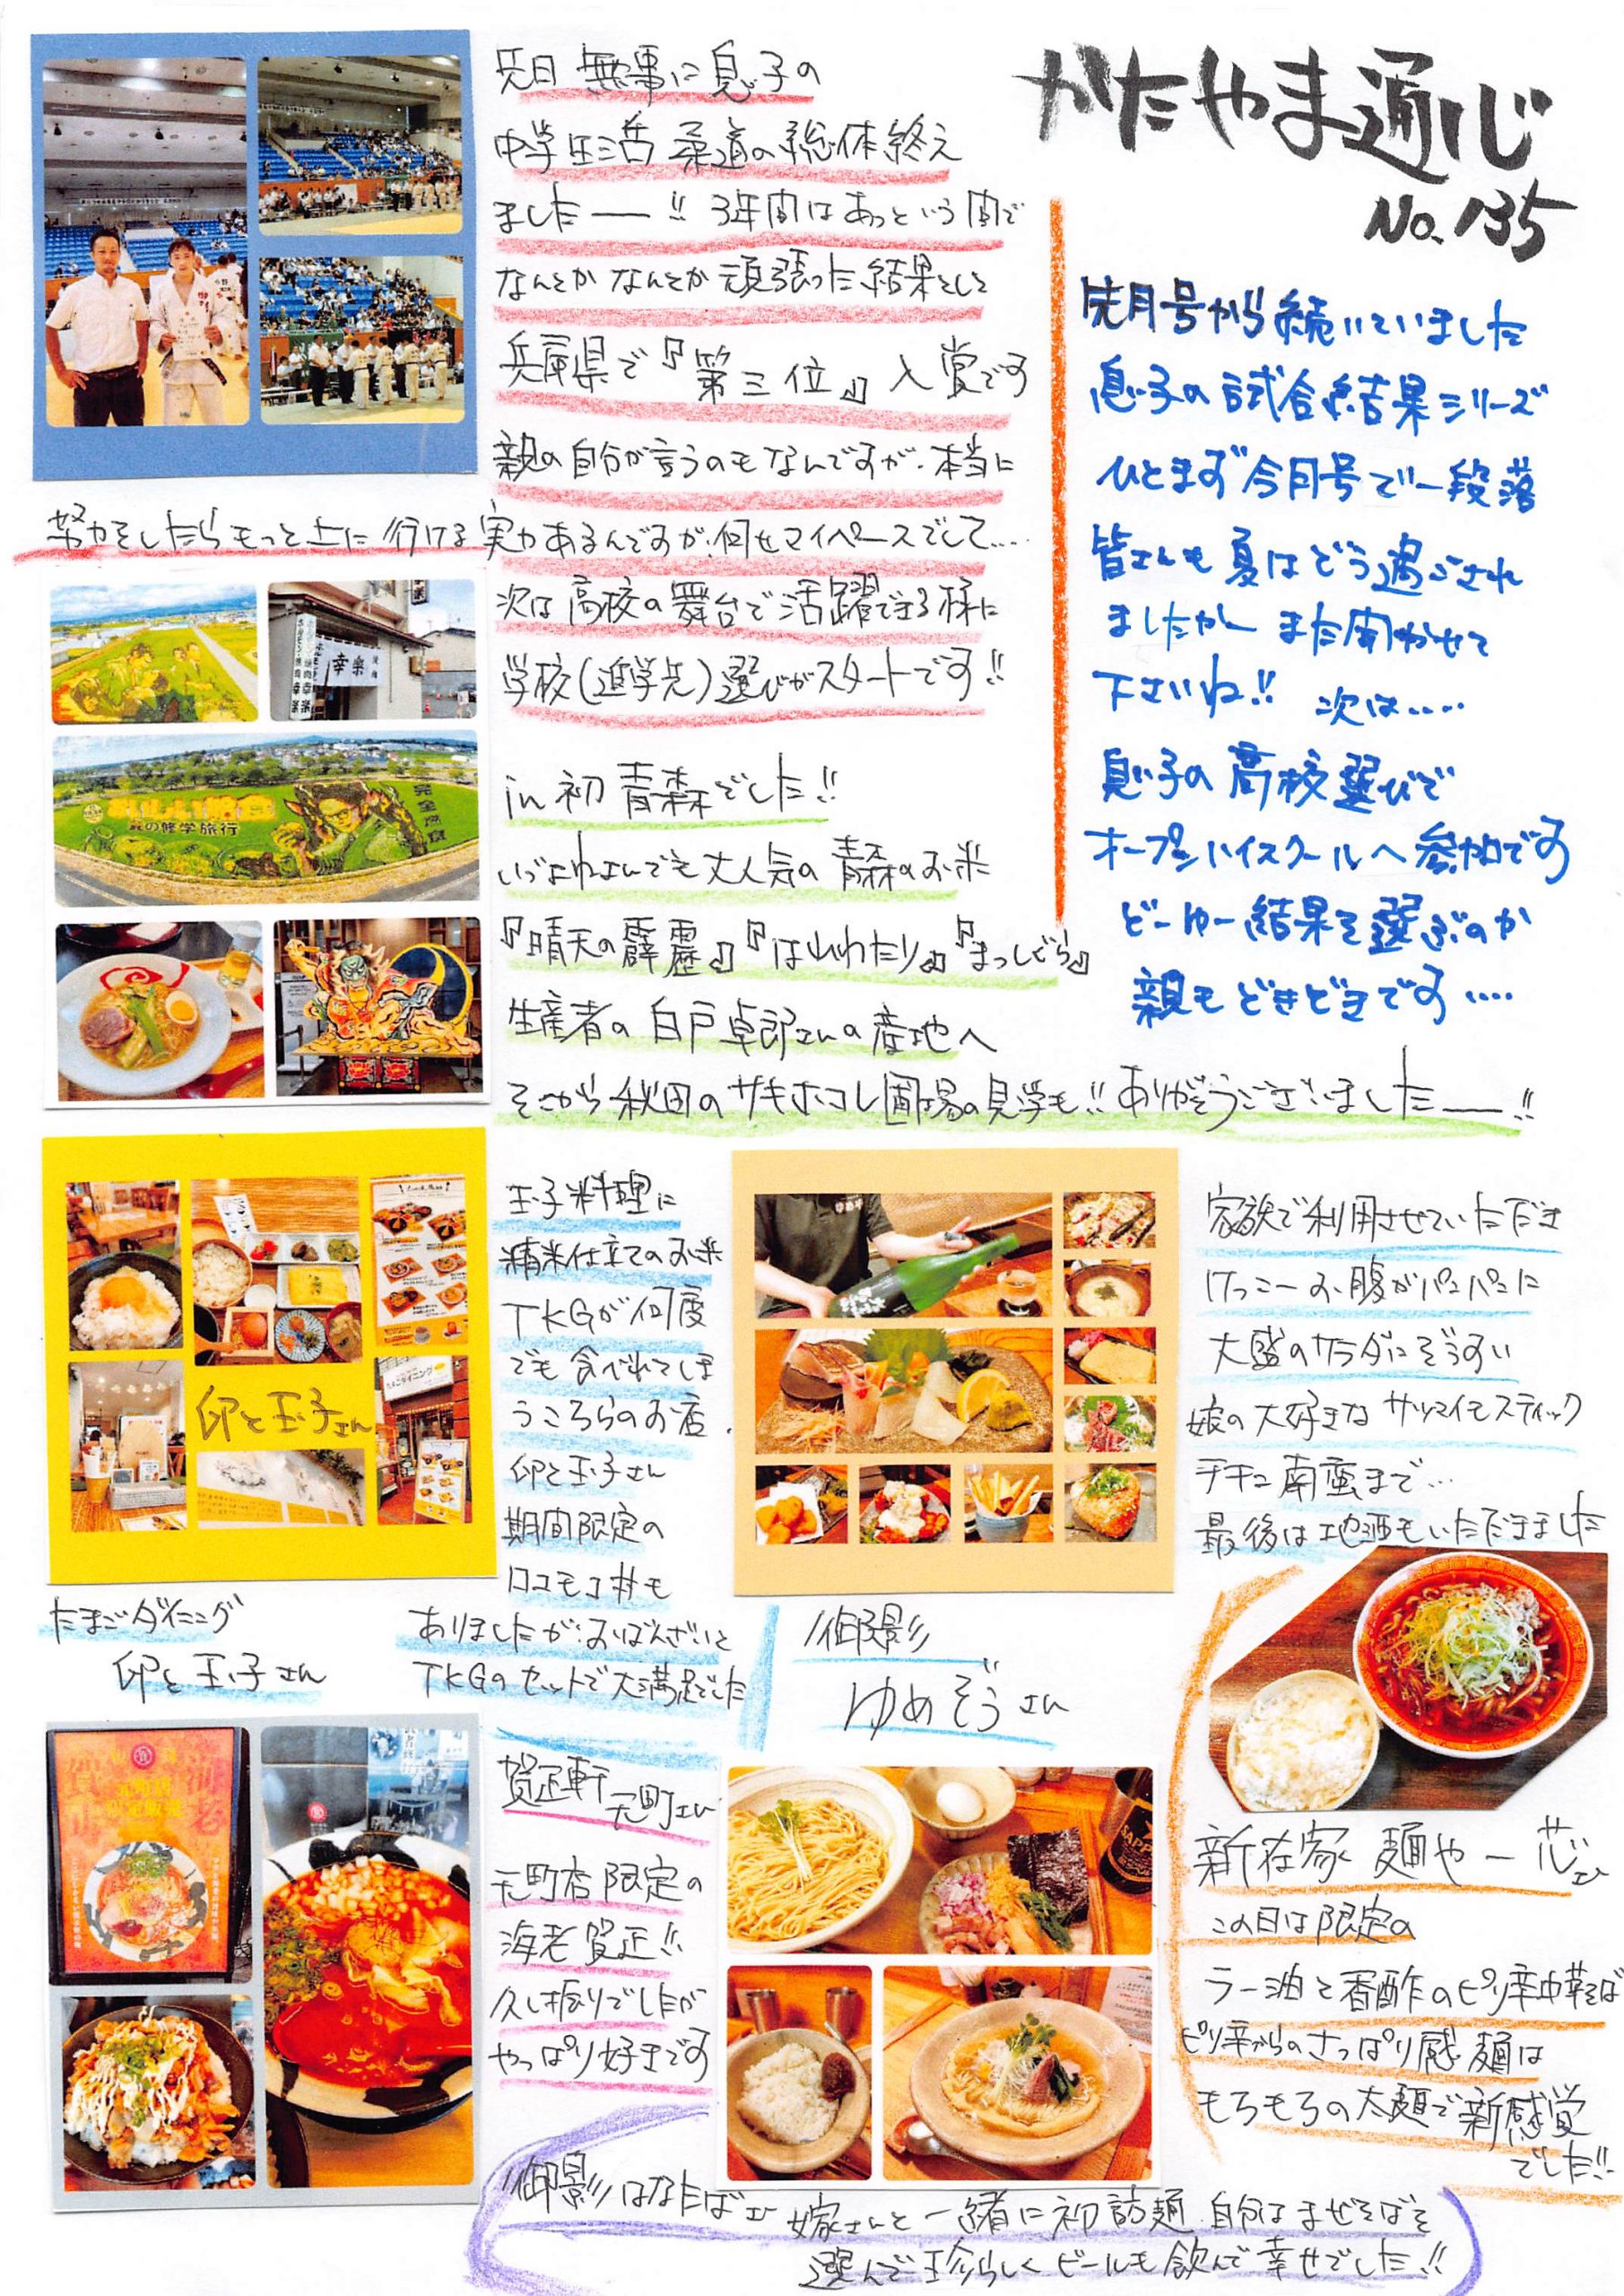 かたやま通信
No.135
先日 無事に息子の
中学生活 柔道の総体終え
ました――!! 3年間はあっという間で
なんとか なんとか 頑張った結果として
兵庫県で『第三位』入賞です
親の自分が言うのもなんですが、本当に
努力をしたらもっと上に行ける実力あるんですが、何せマイペースでして....
次は高校の舞台で活躍できる様に
学校(進学先)選びがスタートです!!
先月号から続いていました
息子の試合結果シリーズ
ひとまず今月号で一段落
皆さんも夏はどう過ごされ
ましたかー また聞かせて
下さいね!! 次は....
息子の高校選びで
オープンハイスクールへ参加です
どーゆー結果を選ぶのか
親もどきどきです....
in 初 青森でした!!
いづよねさんでも大人気の青森のお米
『晴天の霹靂』『はれわたり』『まっしぐら』
生産者の白戸卓郎さんの産地へ
そこから秋田のサキホコレ圃場の見学も!! ありがとうございました――!!
幸楽
完全燃食
炭の修学旅行
玉子料理に
精米仕立てのお米
TKGが何度
でも食べれてしま
うころらのお店.
卵と玉子さん
期間限定の
ロコモコ丼も
ありましたが、おばんざいと
TKGのセットで大満足でした
卵と玉子さん
たまごダイニング
卵と玉子さん
家族で利用させていただき
けっこーお腹がパンパンに
大盛のサラダにぞうすい
娘の大好きなサツマイモスティック
チキン南蛮まで...
最後は地酒もいただきました
御影
ゆめぞうさん
賀正軒 元町さん
元町店限定の
海老賀正!!
久し振りでしたが
やっぱり好きです
新在家 麺や一芯さん
この日は限定の
ラー油と香酢のピリ辛中華そば
ピリ辛からのさっぱり感 麺は
もろもろの太麺で新感覚
でした!!
御影 はなたばさん 嫁さんと一緒に初訪麺 自分はまぜそばを
選んで珍らしくビールも飲んで幸せでした!!